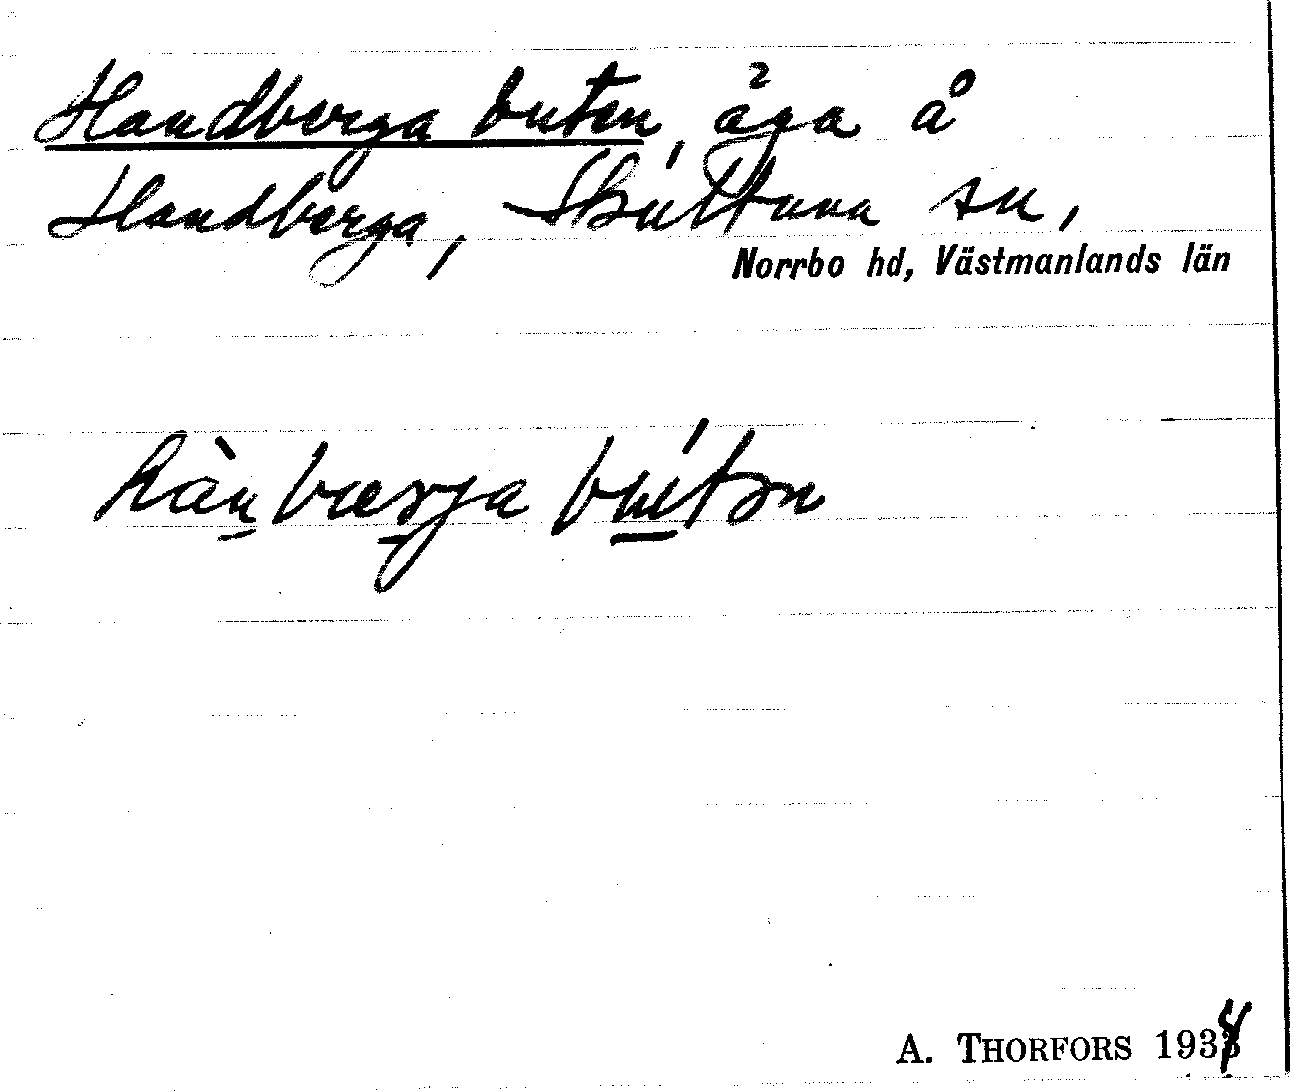 Handberga buten, äga å
Handberga, Skultuna sn,
Norrbo hd, Västmanlands län
A. THORFORS 1934